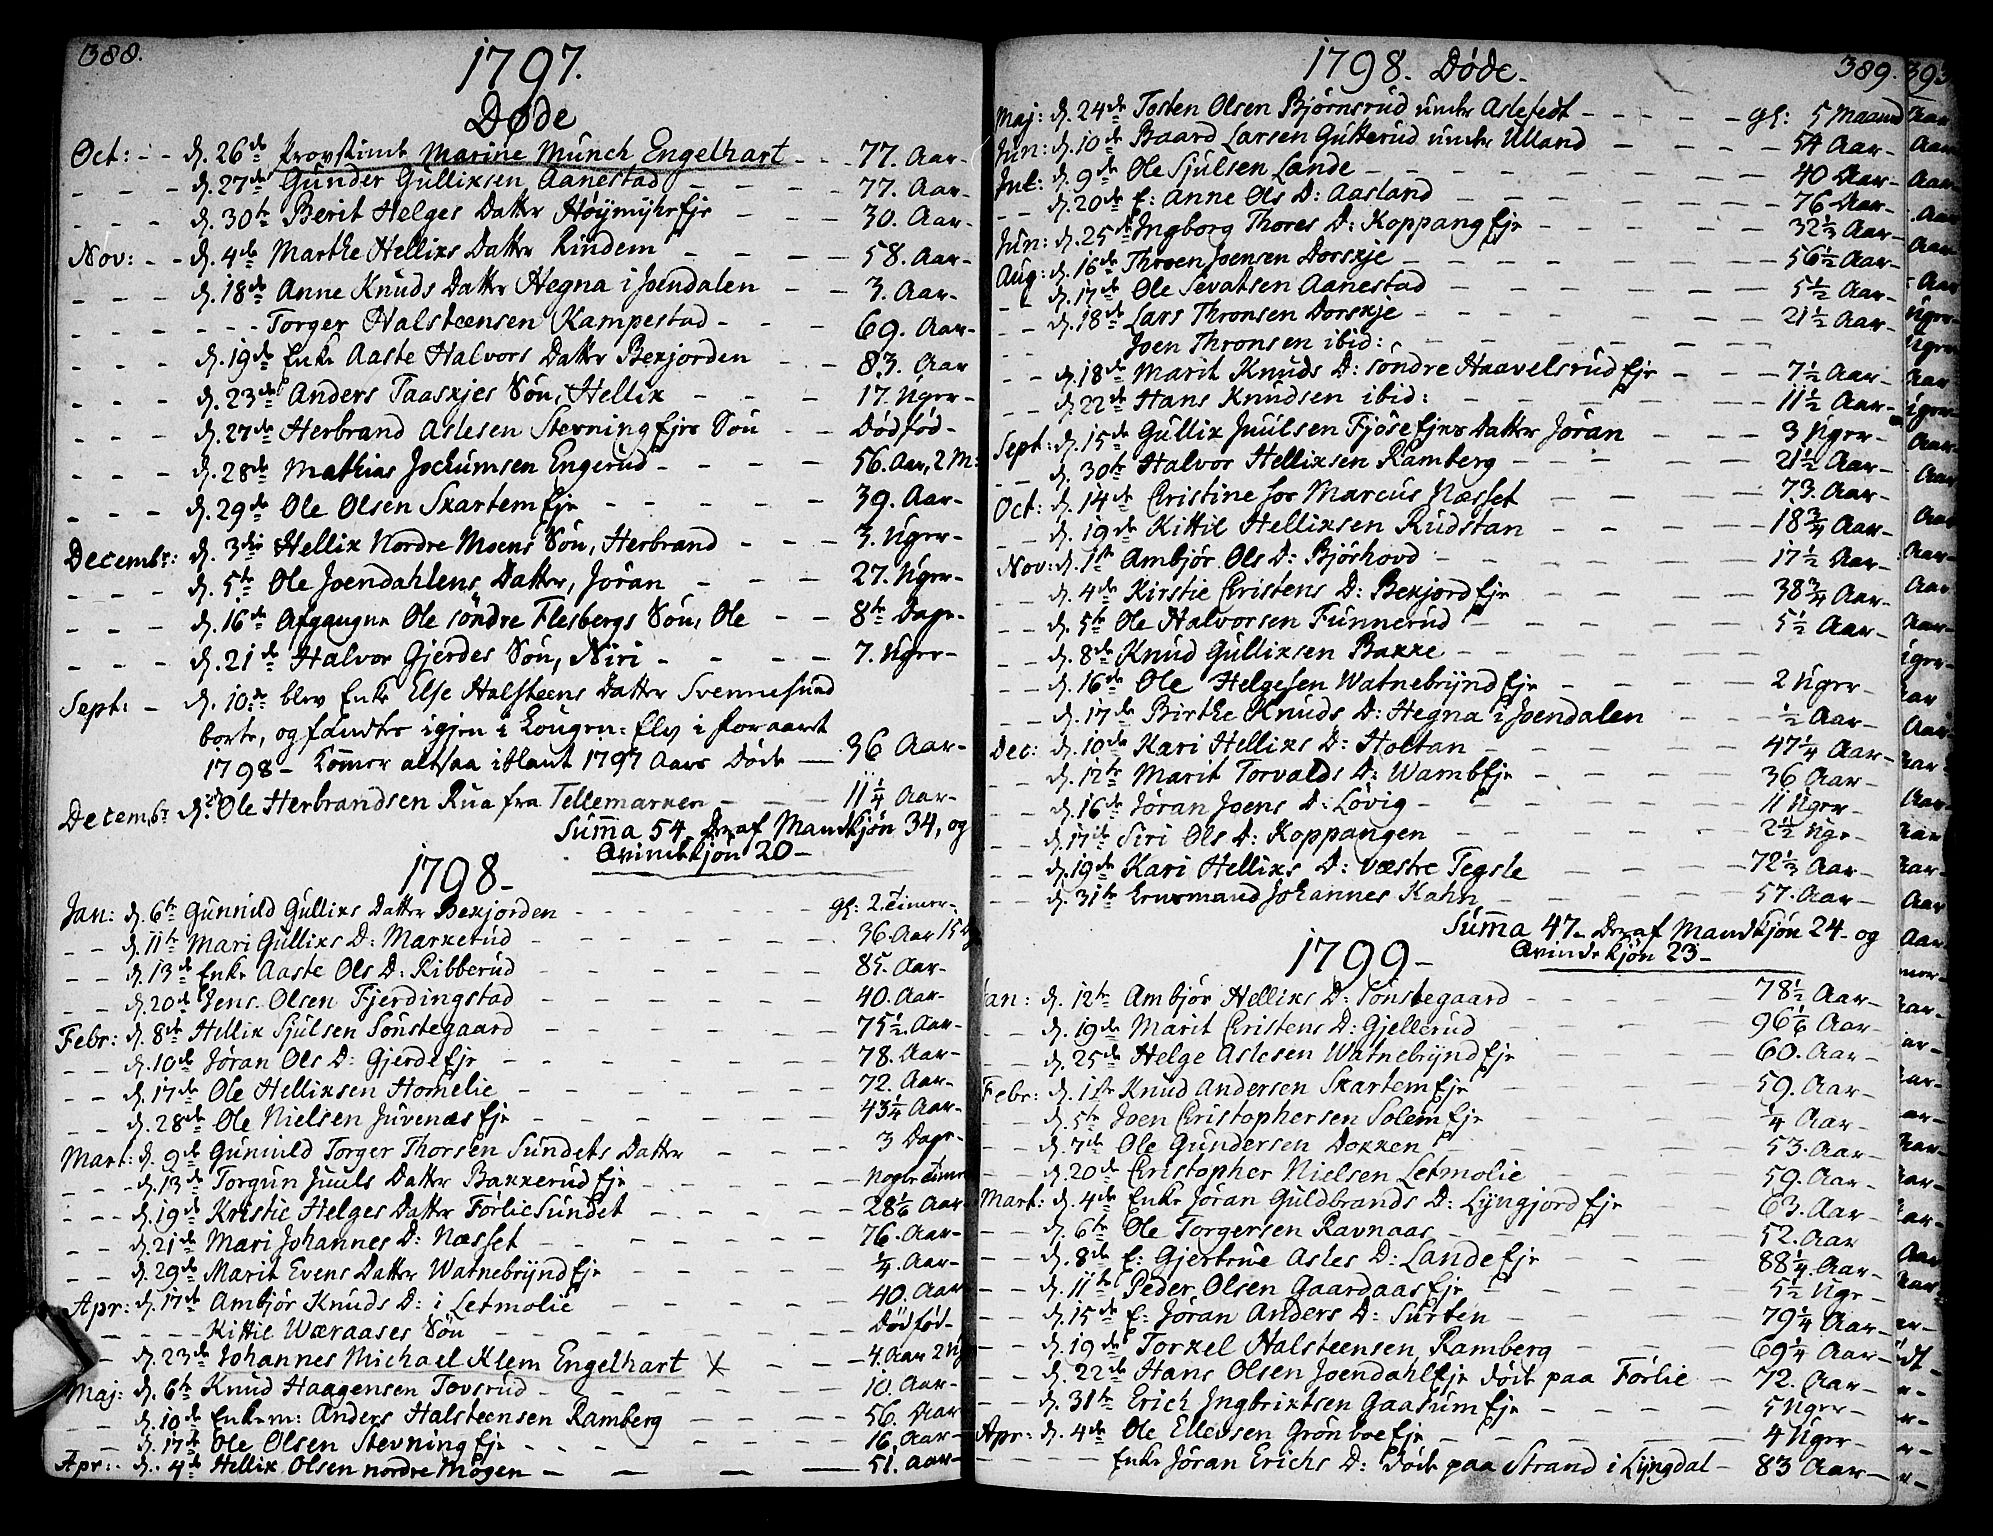 388.
1797.
Døde
Oct: - - d. 26de Provstinde Marine Munch Engelhart - - 77. Aar-
- - - d. 27de Gunder Gullixsen Aanestad - - - 77. Aar-
- - - d. 30te Berit Helges Datter Høymyhr Eje - - - 30. Aar-
Nov: - - d. 4de Marthe Hellixs Datter Rindem - - - - 58. Aar-
- - - d. 18de Anne Knuds Datter Hegna i Joendalen - - 3. Aar-
- - - - - - Torger Halsteensen Kampestad - - - - 69. Aar-
- - - d. 19de Enke Aaste Halvors Datter Bexjorden - - 83. Aar
- - - d. 23de Anders Taasxjes Søn, Hellix - - - 17. Uger-
- - - d. 27de Herbrand Aslesen Stevning Ejes Søn - - Dødfød-
- - - d. 28de Mathias Jochumsen Engerud - - - - 56. Aar, 2 M:
- - - d. 29de Ole Olsen Skartem Eje - - - - 39. Aar-
Decembr: d. 3die Hellix Nordre Moens Søn, Herbrand - - - 3. Uger-
- - - d. 5te Ole Joendahlens Datter, Jøran - - - 27. Uger-
- - - d. 16de Afgangne Ole søndre Flesbergs Søn, Ole - - 8te Dage-
- - - d. 21de Halvor Gjerdes Søn, Niri - - - - 7. Uger-
Sept: - d. 10de blev Enke Else Halsteens Datter Svennesund
borte, og fandtes igjen i Lougen: Elv i foraaret
1798 - kommer altsaa iblant 1797 Aars Døde - 36 Aar-
Decembr d. Ole Herbrandsen Rua fra Tellemarken - - - 11 1/4 Aar-
Summa 54. Deraf Mandkjøn 34, og
Qvindekjøn 20-
1798-
Jan: d. 6te Gunnild Gullixs Datter Bexjorden - - - - - - gl: 2. Timer-
- - d. 11te Mari Gullixs D: Markerud - - - - - - - 36. Aar 15
- - d. 13de Enke Aaste Ols D: Ribberud - - - - - - 85. Aar-
- - d. 20de Jens Olsen Fjerdingstad - - - - - - 40. Aar-
Febr: d. 8de Hellix Sjulsen Sønstegaard - - - - - - 75 1/2. Aar-
- - d. 10de Jøran Ols D: Gjerde Eje - - - - - - 78. Aar-
- - d. 17de Ole Hellixsen Homelie - - - - - - 72. Aar-
- - d. 28de Ole Nielsen Juvenæs Eje - - - - - - 43 1/4 Aar-
Mart: d. 9de Gunnild Torger Thorsen Sundets Datter - - - - 3 Dage-
- - - d. 13de Torgun Juuls Datter Bakkerud Eje - - - - - Nogle Timer
- - d. 19de Kristie Helges Datter Førlie Sundet - - - - - 28 1/6 Aar
- - d. 21de Mari Johannes D: Næsset - - - - - - 76. Aar-
- - d. 29de Marit Evens Datter Watnebrynd Eje - - - - - 1/4. Aar-
Apr: d. 17de Ambjør Knuds D: i Letmolie - - - - - 40. Aar
- - - - Kittil Wæraases Søn - - - - - - - Dødfød-
- d. 23de Johannes Michael Klem Engelhart X - - - 4. Aar 2
Maj: d. 6te Knud Haagensen Tovsrud - - - - - - 10. Aar-
- d. 10de Enkem: Anders Halsteensen Ramberg - - - - 56. Aar
- - d. 17de Ole Olsen Stevning Eje - - - - - - - 16. Aar-
Apr: d. 4de Hellix Olsen nordre Mogen - - - - 51. Aar-

389.
1798. Døde-
Maj: d. 24de Tosten Olsen Bjørnsrud under Aslefedt - - - - gl: 5 Maaned
Jun: d. 10de Baard Larsen Gutterud under Ulland - - - - 54 Aar-
Jul: d. 9de Ole Sjulsen Lande - - - - - - - 40 Aar-
- - d. 20de E: Anne Ols D: Aasland - - - - - - 76 Aar-
Jun: d. 25de Ingborg Thores D: Koppang Eje - - - - - 32 1/3 Aar-
Aug: d. 16de Thron Joensen Dorsxje - - - - - - 56 1/2 Aar-
- d. 17de Ole Sevatsen Aanestad - - - - - - 5 1/2 Aar-
- - d. 18de Lars Thronsen Dorsxje - - - - - - 21 1/2 Aar-
- - Joen Thronsen ibid: - - - - - - - -
- - d. 18de Marit Knuds D: søndre Haavelsrud Eje - - - - 7 1/2 Aar-
- - d. 22de Hans Knudsen ibid: - - - - - - - 11 1/2 Aar-
Sept: d. 15de Gullix Juulsen Fjøse Ejes Datter Jøran - - - 3 Uger-
- - d. 30te Halvor Hellixsen Ramberg - - - - - - 21 1/2 Aar-
Oct: d. 14de Cristine Marcus Næsset - - - - - 73. Aar-
- - d. 19de Kittil Hellixsen Rudstan - - - - - 18 3/4 Aar-
Nov: d. 1ste Ambjør Ols D: Bjørhovd - - - - - - 17 1/2 Aar-
- - d. 4de Kirstie Cristens D: Bexjord Eje - - - - - 38 3/4 Aar-
- - d. 5te Ole Halvorsen Funnerud - - - - - - 5 1/2 Aar-
- - d. 8de Knud Gullixsen Bakke - - - - - - -
- - d. 16de Ole Helgesen Watnebrynd Eje - - - - - 2 Uger-
- - d. 17de Birthe Knuds D: Hegna i Joendalen - - - - 1/2 Aar-
Dec: d. 10de Kari Hellixs D: Holtan - - - - - - 47 1/4 Aar-
- - d. 12te Marit Torvalds D: Wamb Eje - - - - - 36 Aar-
- - d. 16de Jøran Joens D: Løvig - - - - - - - 11 Uger-
- - d. 17de Siri Ols D: Koppangen - - - - - - 2 1/2 Uge-
- - d. 19de Kari Hellixs D: Væstre Tegsle - - - - 72 1/3 Aar-
- - d. 31te Johannes Kahn - - - - - 57. Aar-
Summa 47. Deraf Mandkjøn 24- og
Qvindekjøn 23-
1799-
Jan: d. 12te Ambjør Hellixs D: Sønstegaard - - - - - 78 1/2 Aar-
- - d. 19de Marit Cristens D: Gjellerud - - - - - 96 1/6 Aar-
- - d. 25de Helge Aslesen Watnebrynd Eje - - - - - 60. Aar-
Febr: d. 1ste Knud Andersen Skartem Eje - - - - - 59. Aar-
- - d. 5te Joen Cristophersen Solem Eje - - - - - 1/4 Aar-
- - d. 7de Ole Gundersen Dokken - - - - - - 53. Aar-
- - d. 20de Cristopher Nielsen Letmolie - - - - - 59. Aar-
Mart: d. 4de Enke Jøran Guldbrands D: Lyngjord Eje - - - 63. Aar-
- - d. 6te Ole Torgersen Ravnaas - - - - - - 52. Aar
- - d. 8de E: Gjertrue Asles D: Lande Eje - - - - 88 1/4. Aar-
- - d. 11te Peder Olsen Gaardaas Eje - - - - - 5 1/2 Uge-
- - d. 15de E: Jøran Anders D: Surten - - - - - 79 1/4 Aar-
- - d. 19de Torkel Halsteensen Ramberg - - - - 69 1/4 Aar-
- - d. 22de Hans Olsen Joendahl Eje døde paa Førlie - 72. Aar-
- - d. 31te Erich Ingbrixtsen Gaasum Eje - - - - 5 Uger-
Apr: d. 4de Ole Ellevsen Grønboe Eje - - - - - 4 Uger-
- - - - - Enke Jøran Erichs D: døde paa Strand i Lyngdal - 83 Aar-
393